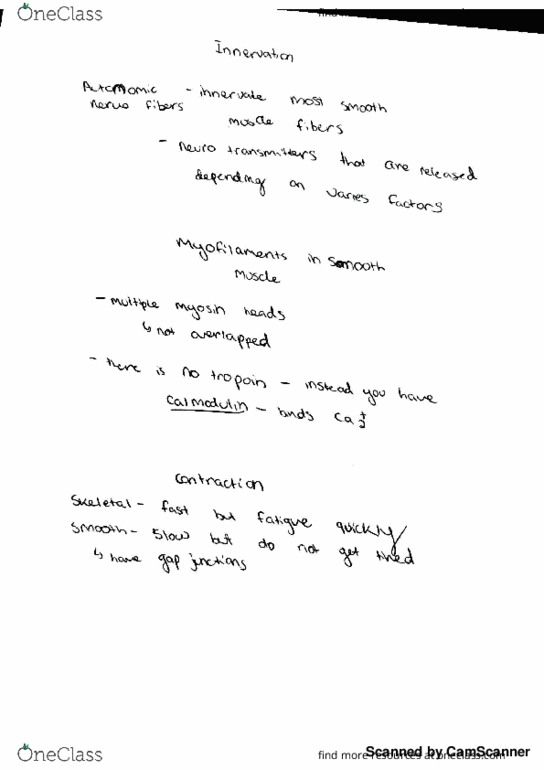 OneClass
find m
Innervation
Autonomic - innervate most smooth
nerve fibers muscle fibers
- neuro transmitters that are released
depending on varies factors
Myofilaments in smooth
muscle
- multiple myosin heads
↳ not overlapped
- there is no tropoin - instead you have
calmodulin - binds Ca
Contraction
Skeletal - fast but fatigue quickly
Smooth - slow but do not get tired
↳ have gap junctions
OneClass
find more resources at oneclass.com
Scanned by CamScanner